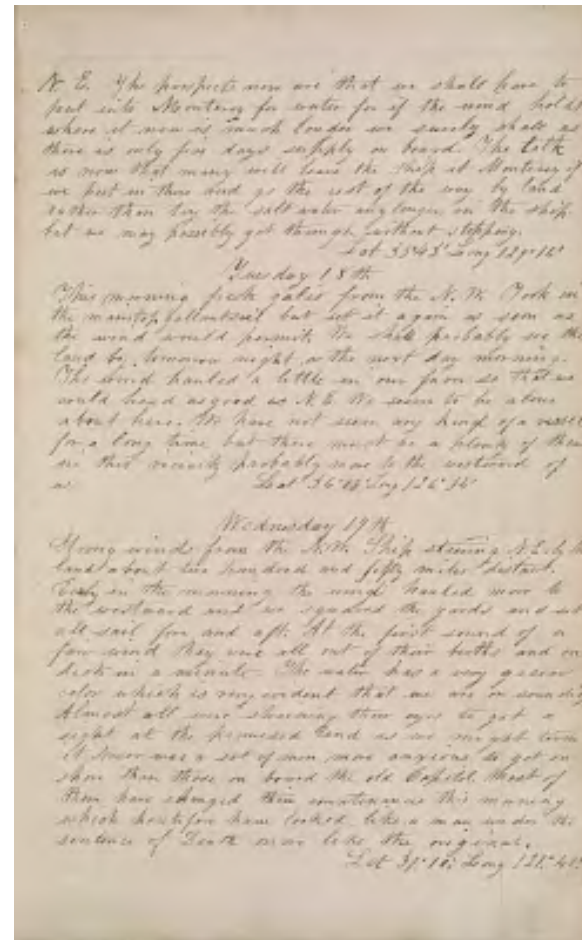 N. E. The prospects now are that we shall have to
put into Monterey for water for if the wind holds
where it now is much longer we surely shall as
there is only five days supply on board. The talk
is now that many will leave the ship at Monterey if
we put in there and go the rest of the way by land
rather than try the salt water any longer in the ship
but we may possibly get through without stopping.
Lat 35°43' Long 129°16'
Tuesday 18th
This morning fresh gales from the N. W. Took in
the maintop gallantsail but set it again as soon as
the wind would permit. We shall probably see the
land by tomorrow night or the next day morning.
The wind hauled a little in our favor so that we
could head as good as N.E. We seem to be alone
about here. We have not seen any kind of a vessel
for a long time but there must be a plenty of them
in this vicinity probably more to the westward of
us Lat 36° Long 126°36'
Wednesday 19th
Strong winds from the N.W. Ship steering N.E. by N
land about two hundred and fifty miles distant.
Early in the morning the wind hauled more to
the westward and we squared the yards and set
all sail fore and aft. At the first sound of a
fair wind they were all out of their births and on
deck in a minute. The water has a very green
color which is very evident that we are on soundings
Almost all were straining their eyes to get a
sight at the promised land as we might term
it. Never was a set of men more anxious to get on
shore than those on board the old Capitol. Most of
them have changed their countenances this morning
which heretofore have looked like a man under the
sentence of Death more like the original.
Lat Long